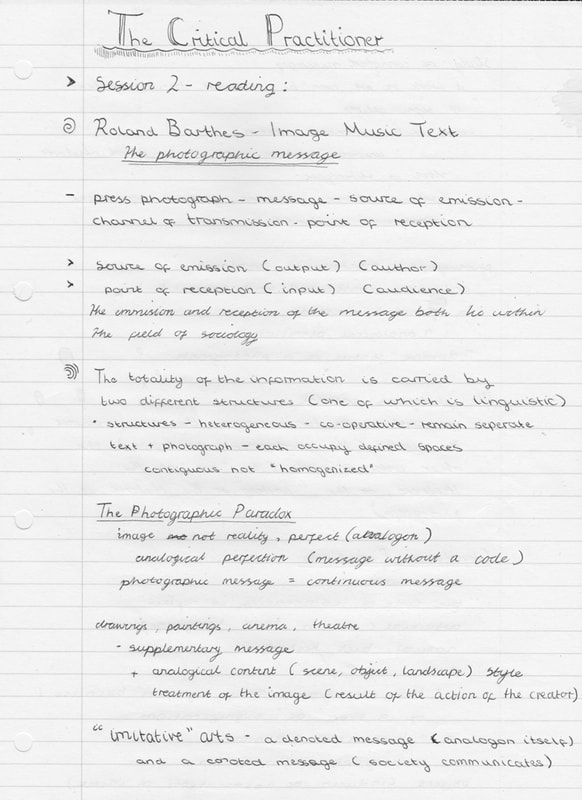 The Critical Practitioner
> Session 2 - reading :
Roland Barthes - Image Music Text
The photographic message
- press photograph - message - source of emission -
channel of transmission - point of reception
> source of emission (output) (author)
> point of reception (input) (audience)
The emmision and reception of the message both lie within
the field of sociology
The totality of the information is carried by
two different structures (one of which is linguistic)
• structures - heterogeneous - co-operative - remain seperate
text + photograph - each occupy defined spaces
contiguous not "homogenized"
The Photographic Paradox
image not reality, perfect (analogon)
analogical perfection (message without a code)
photographic message = continuous message
drawings, paintings, cinema, theatre
- supplementary message
+ analogical content (scene, object, landscape) style
treatment of the image (result of the action of the creator)
"imitative" arts - a denoted message (analogon itself)
and a conoted message (society communicates)